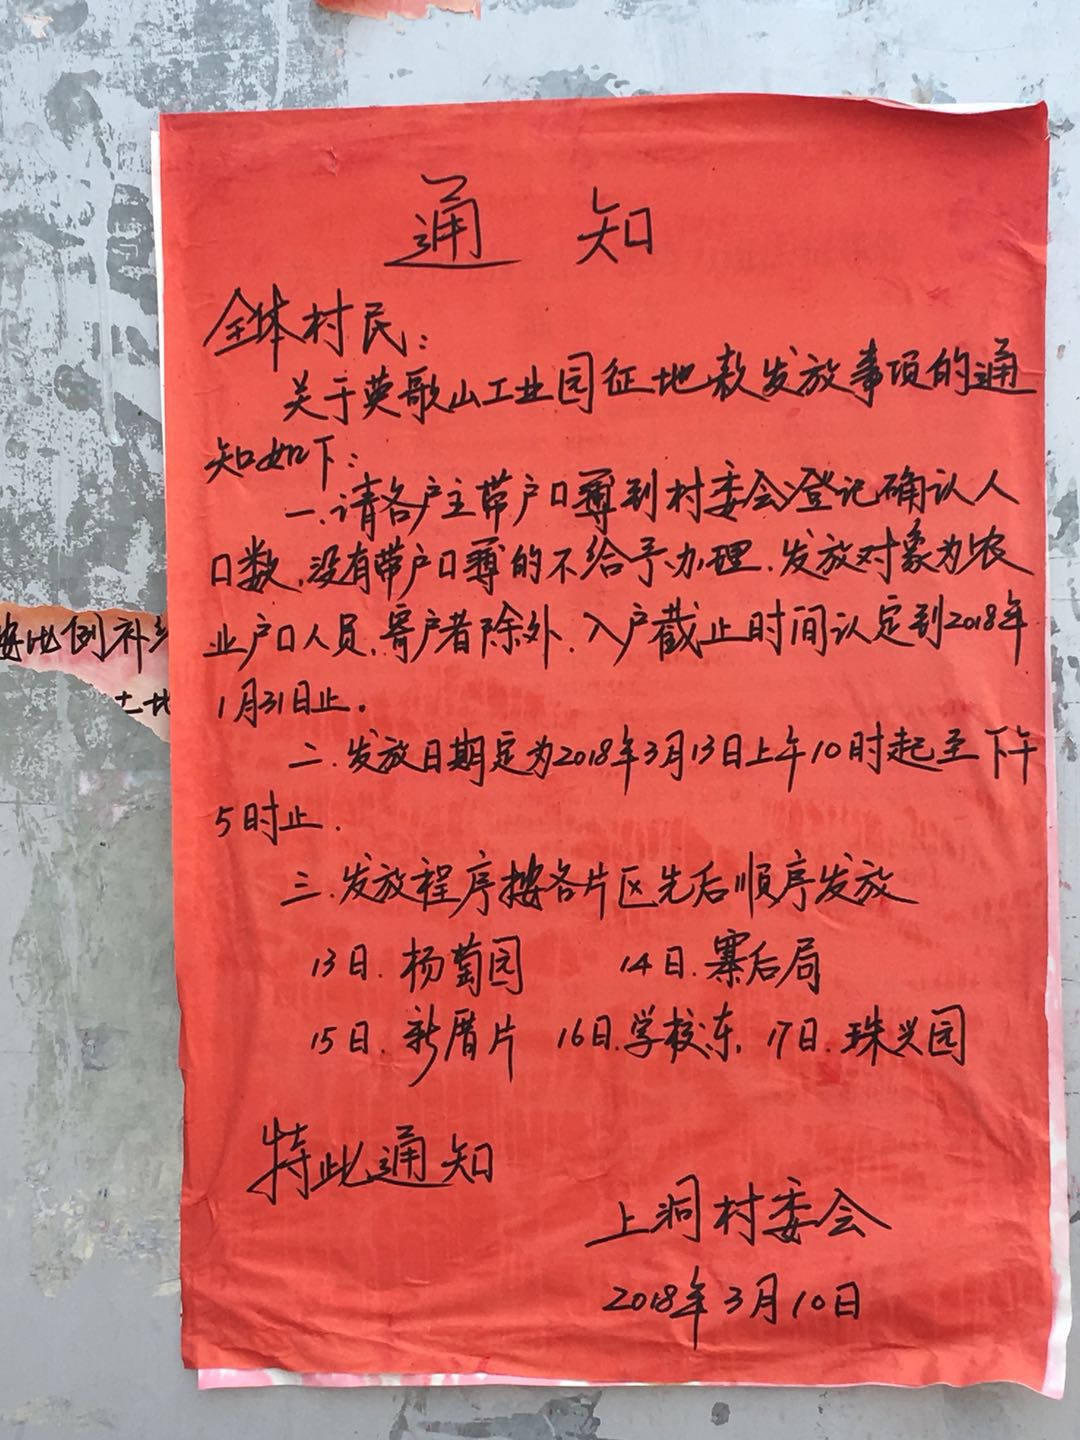 通知
全体村民：
关于英歌山工业园征地款发放事项的通
知如下：
一.请各户主带户口簿到村委会登记确认人
口数,没有带户口簿的不给予办理.发放对象为农
业户口人员,寄户者除外.入户截止时间认定到2018年
1月31日止.
二.发放日期定为2018年3月13日上午10时起至下午
5时止.
三.发放程序按各片区先后顺序发放
13日.杨萄园 14日.寨后局
15日.新厝片 16日.学校东, 17日.珠兴园
特此通知
上洞村委会
2018年3月10日
按比例补
土地